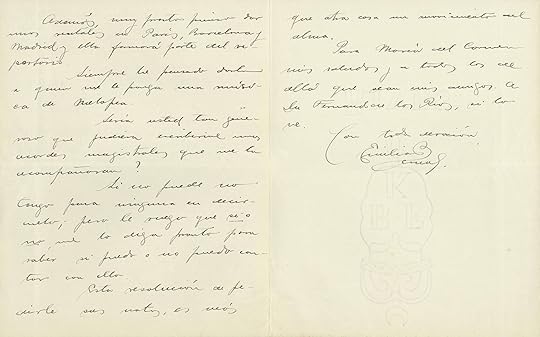 Además, muy pronto pienso dar
unos recitales en Paris, Barcelona y
Madrid y ella formará parte del re-
pertorio
Siempre he pensado
a quien me le ponga una músi-
ca de Melopea.
Sería usted tan gene-
roso que pudiera escribirme unos
acordes magistrales que me la
acompañaran?
Si no puede no
tenga pena ninguna en decir-
melo; pero le ruego que si o
no, me lo diga pronto para
saber si puedo o no puedo con-
tar con ello.
Esta resolución de pe-
dirle sus notas, es más
que otra cosa un movimiento del
alma.
Para María del Carmen
mis saludos y a todos los de
allá que sean mis amigos
Fernando de los Ríos, si lo
ve.
Con toda devoción,
Emilia